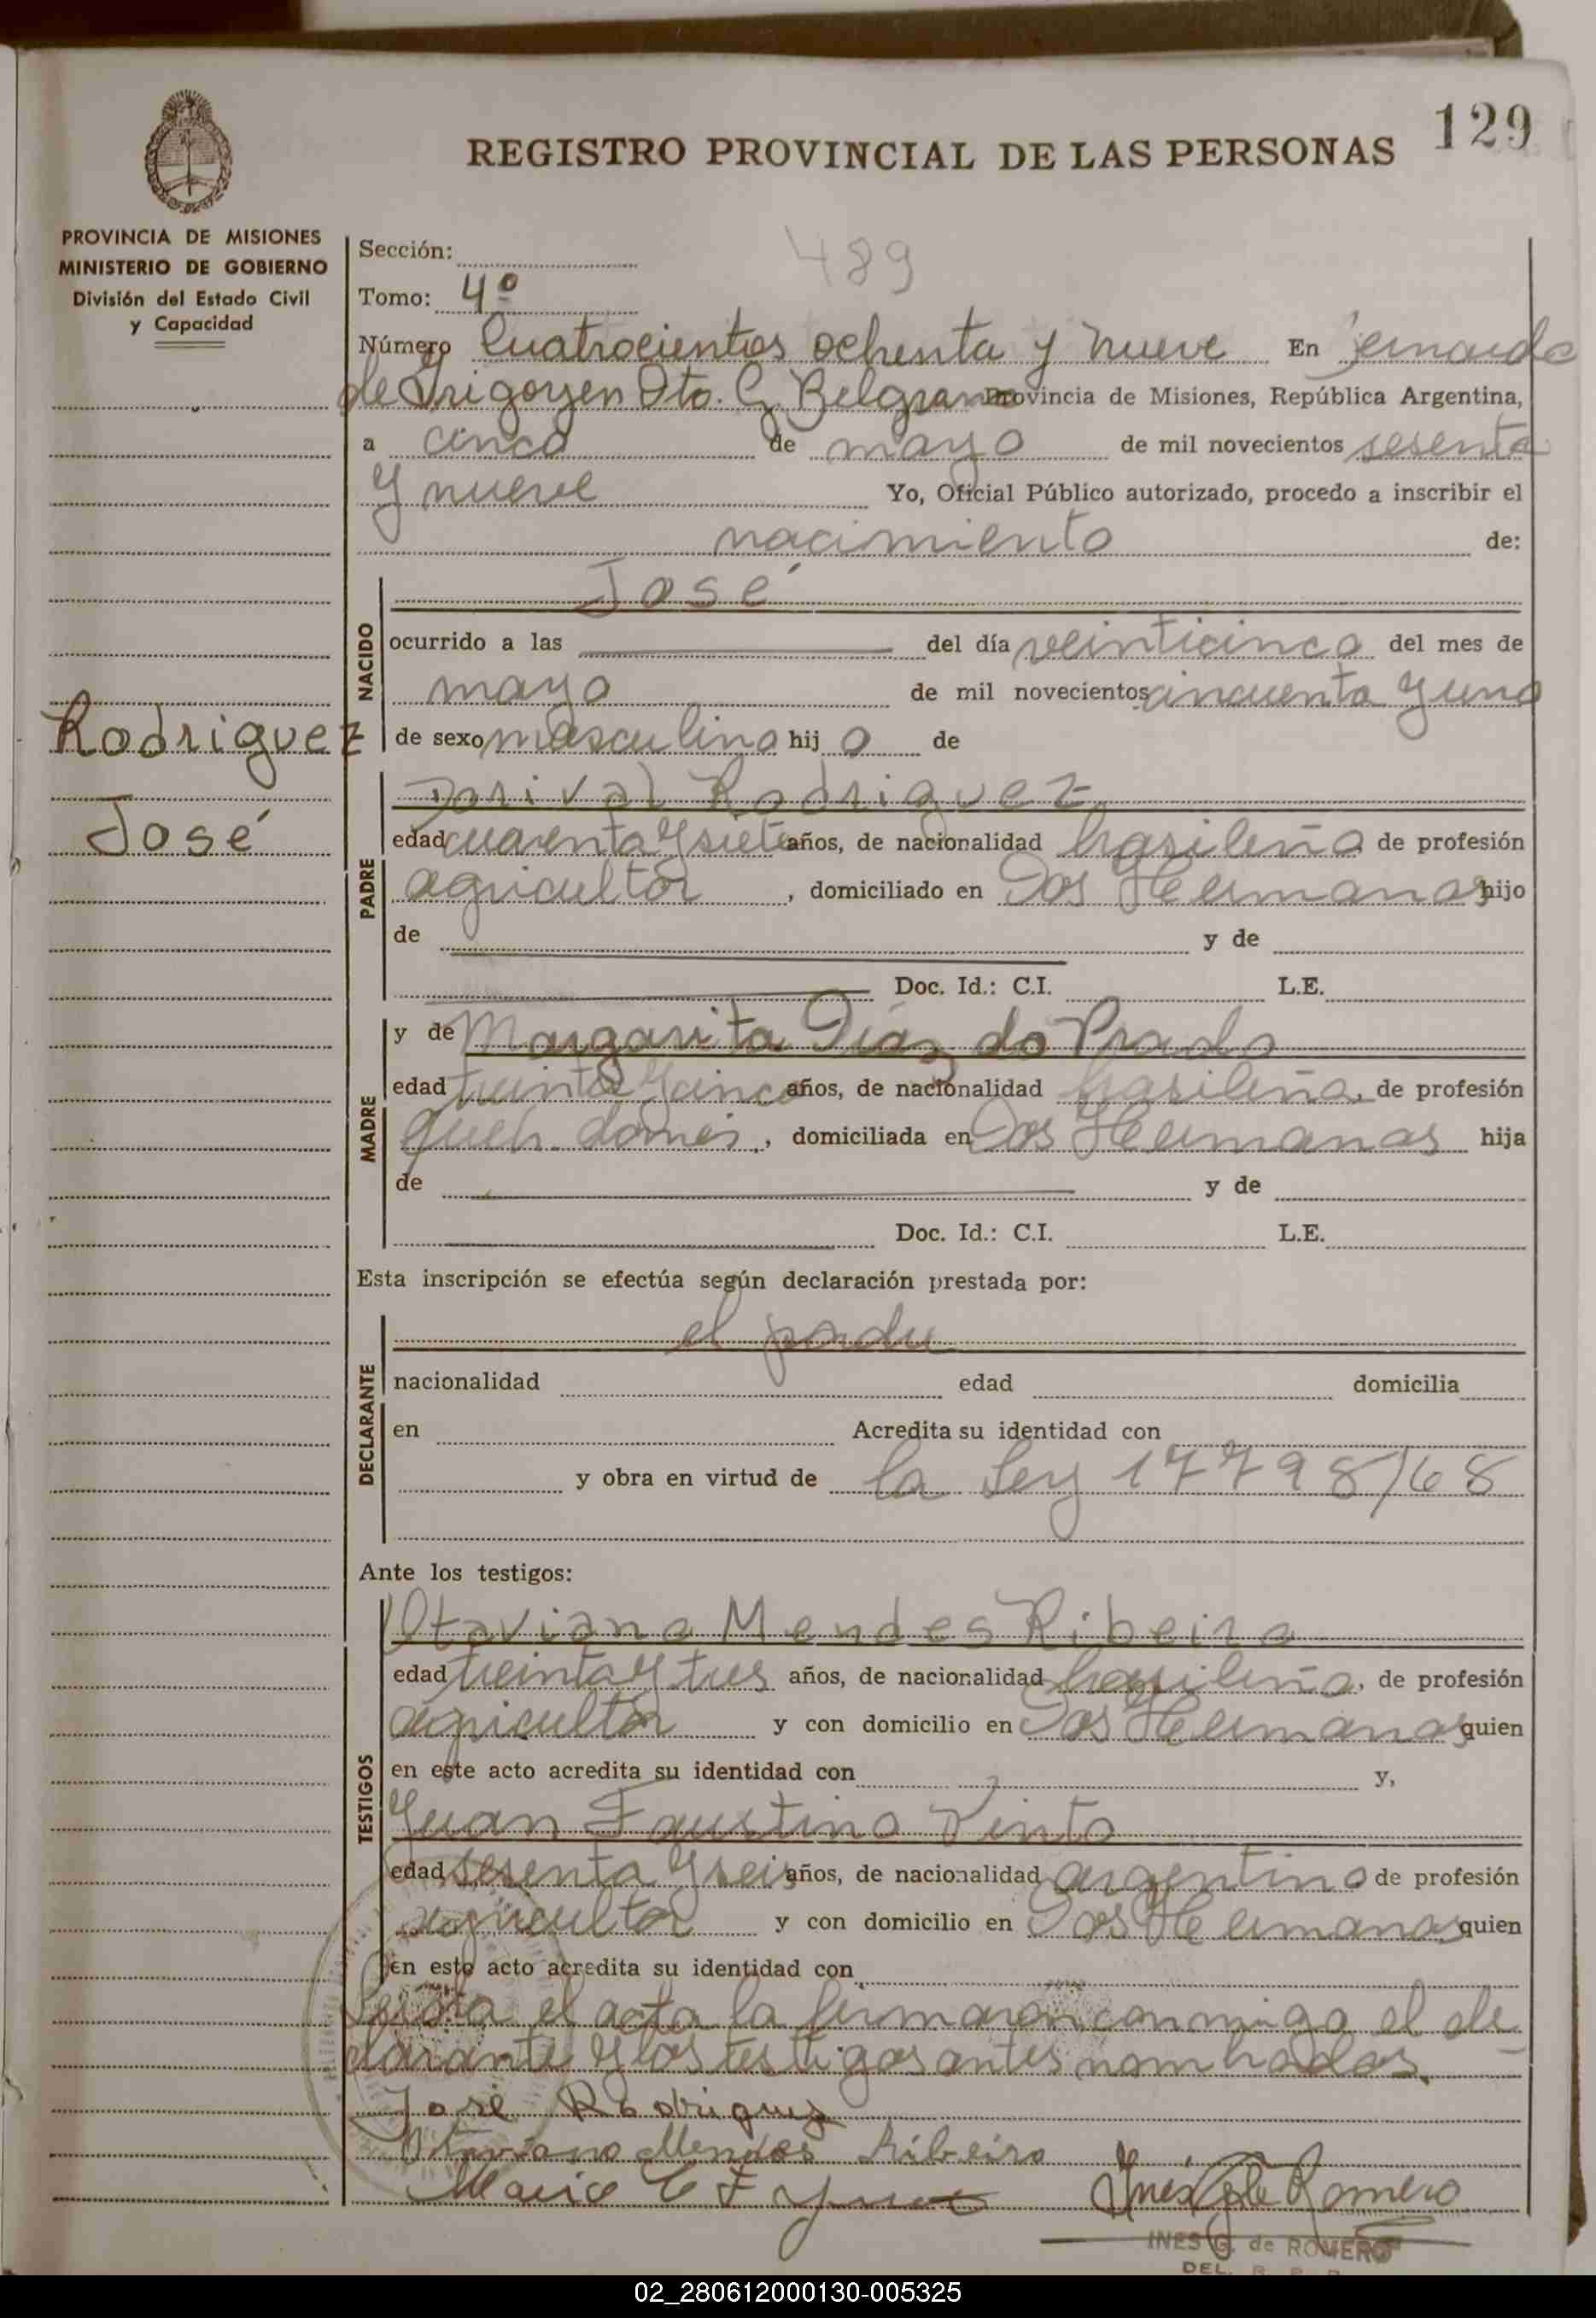 129
REGISTRO PROVINCIAL DE LAS PERSONAS
PROVINCIA DE MISIONES
MINISTERIO DE GOBIERNO
División del Estado Civil
y Capacidad
489
Sección:
Tomo: 4º
Número Cuatrocientos ochenta y nueve En
de Irigoyen Dto. G. Belgrano Provincia de Misiones, República Argentina,
a cinco de mayo de mil novecientos sesenta
y nueve Yo, Oficial Público autorizado, procedo a inscribir el
nacimiento de:
NACIDO
José
ocurrido a las del día veinticinco del mes de
mayo de mil novecientos cincuenta y uno
Rodriguez
de sexo masculino hijo de
José
PADRE
Dorival Rodriguez
edad cuarenta y siete años, de nacionalidad brasileña de profesión
agricultor, domiciliado en Dos Hermanas hijo
de y de
Doc. Id.: C.I. L.E.
MADRE
y de Margarita Díaz do Prado
edad treinta y cinco años, de nacionalidad brasileña, de profesión
queh. domés., domiciliada en Dos Hermanas hija
de y de
Doc. Id.: C.I. L.E.
Esta inscripción se efectúa según declaración prestada por:
DECLARANTE
el padre
nacionalidad edad domicilia
en Acredita su identidad con
y obra en virtud de la Ley 17798/68
Ante los testigos:
TESTIGOS
Otaviano Mendes Ribeiro
edad treinta y tres años, de nacionalidad brasileña, de profesión
agricultor y con domicilio en Dos Hermanas quien
en este acto acredita su identidad con y,
Juan Faustino Pinto
edad sesenta y seis años, de nacionalidad argentino de profesión
agricultor y con domicilio en Dos Hermanas quien
en esto acto acredita su identidad con
Leida el acta la firmaron conmigo el de
clarante y los testigos antes nombrados.
José Rodriguez
Otaviano Mendes Ribeiro
Inés G. de Romero
INES G. de ROMERO
DEL. R. P. P.
02_280612000130-005325